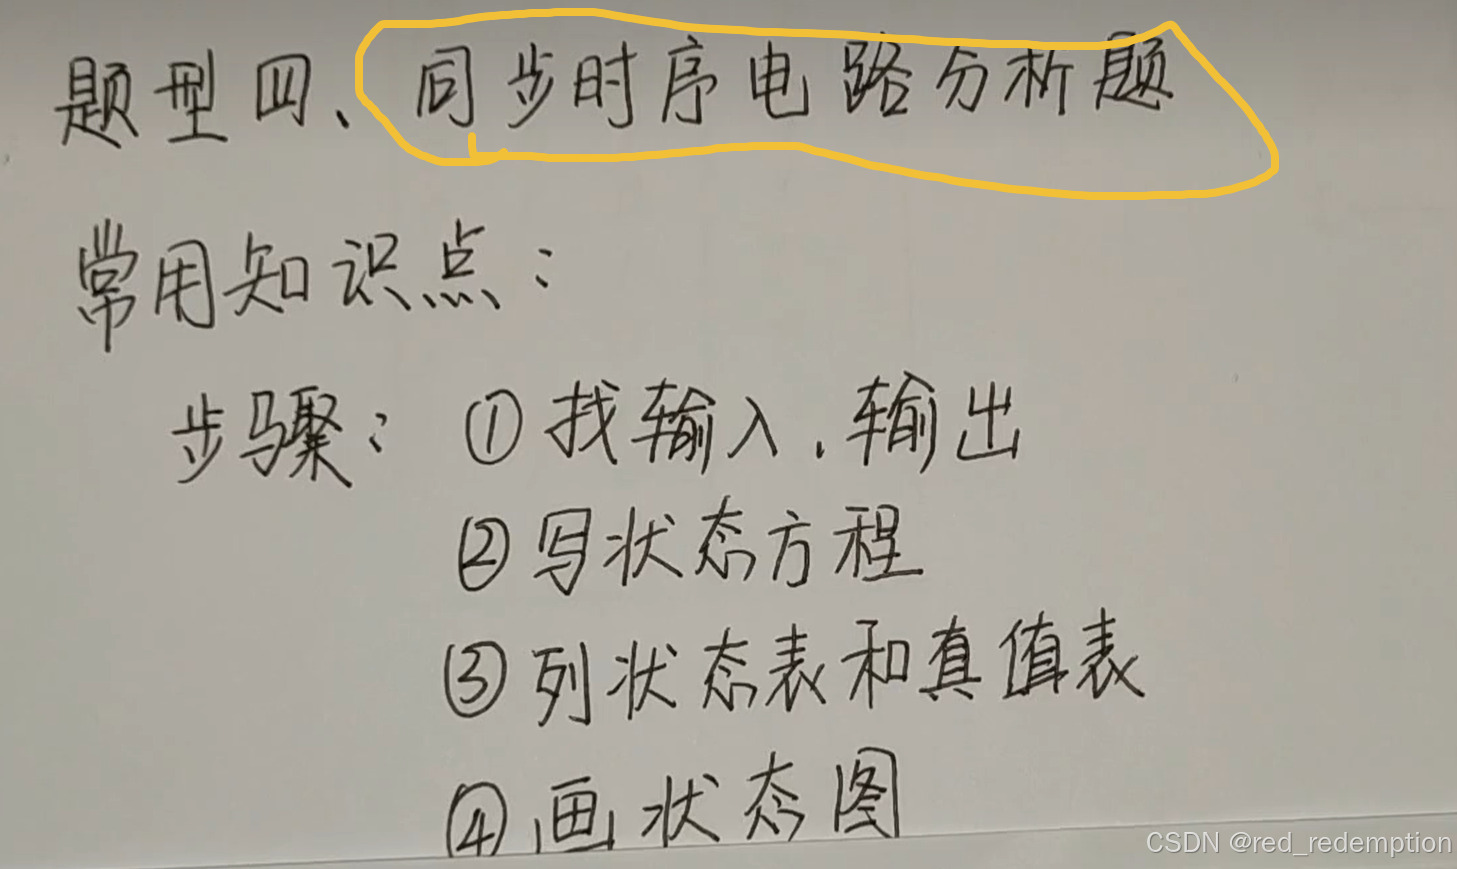 题型四、同步时序电路分析题
常用知识点：
步骤：①找输入、输出
②写状态方程
③列状态表和真值表
④画状态图
CSDN @red_redemption